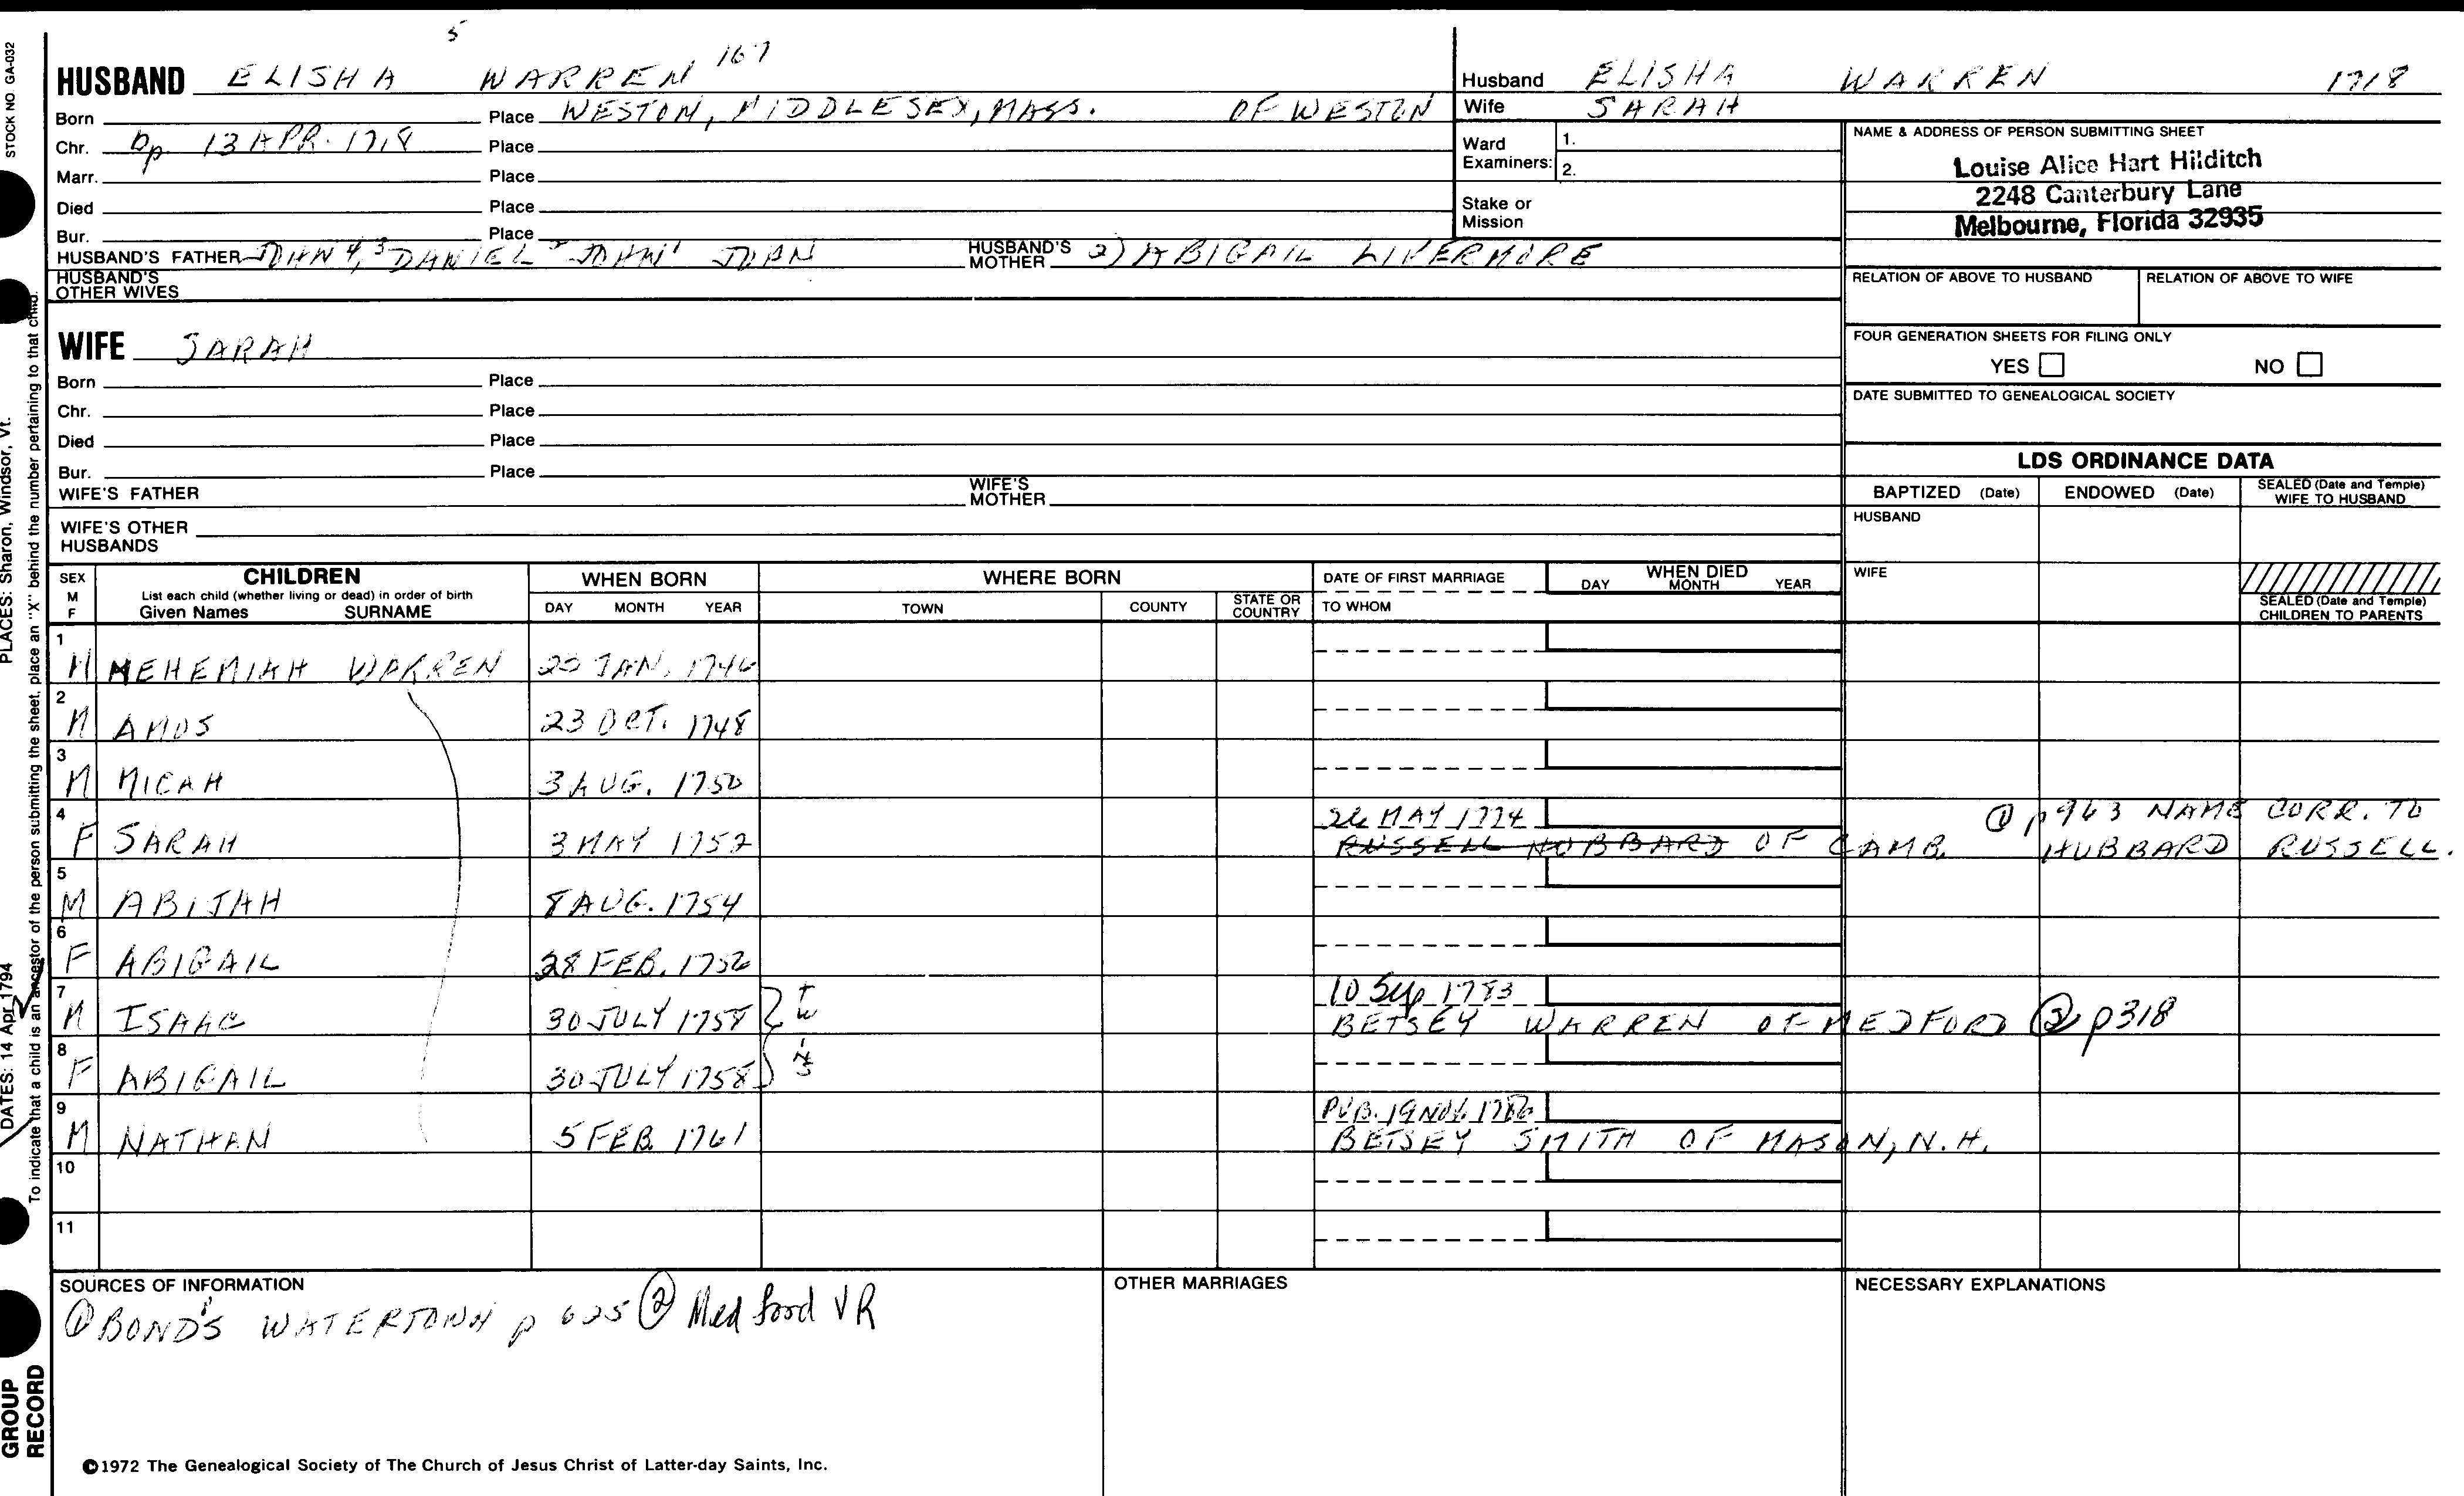 5
HUSBAND ELISHA WARREN 167
Born Place WESTON, MIDDLESEX, MASS. OF WESTON
Chr. Bp. 13 APR. 1718 Place
Marr. Place
Died Place
Bur. Place
HUSBAND'S FATHER JOHN 4, 3 DANIEL 2 JOHN 1 JOHN HUSBAND'S MOTHER 2) ABIGAIL LIVERMORE
HUSBAND'S OTHER WIVES
WIFE SARAH
Born Place
Chr. Place
Died Place
Bur. Place
WIFE'S FATHER WIFE'S MOTHER
WIFE'S OTHER HUSBANDS
Husband ELISHA WARREN 1718
Wife SARAH
Ward Examiners: 1.
2.
Stake or Mission
NAME & ADDRESS OF PERSON SUBMITTING SHEET
Louise Alice Hart Hilditch
2248 Canterbury Lane
Melbourne, Florida 32935
RELATION OF ABOVE TO HUSBAND RELATION OF ABOVE TO WIFE
FOUR GENERATION SHEETS FOR FILING ONLY
YES NO
DATE SUBMITTED TO GENEALOGICAL SOCIETY
LDS ORDINANCE DATA
BAPTIZED (Date) ENDOWED (Date) SEALED (Date and Temple) WIFE TO HUSBAND
HUSBAND
WIFE
SEALED (Date and Temple) CHILDREN TO PARENTS
SEX M F CHILDREN WHEN BORN WHERE BORN DATE OF FIRST MARRIAGE WHEN DIED
List each child (whether living or dead) in order of birth
Given Names SURNAME DAY MONTH YEAR TOWN COUNTY STATE OR COUNTRY TO WHOM DAY MONTH YEAR
1 M NEHEMIAH WARREN JAN. 1746
2 M AMOS 23 OCT. 1748
3 M MICAH 3 AUG. 1750
4 F SARAH 3 MAY 1752 26 MAY 1774
RUSSELL HUBBARD OF CAMB. ① p963 NAME CORR. TO
HUBBARD RUSSELL.
5 M ABIJAH 8 AUG. 1754
6 F ABIGAIL 28 FEB. 1756
7 M ISAAC 30 JULY 1758 TWINS 10 Sep 1783
BETSEY WARREN OF MEDFORD ② p318
8 F ABIGAIL 30 JULY 1758
9 M NATHAN 5 FEB. 1761 PUB. 19 NOV. 1786
BETSEY SMITH OF MASON, N.H.
10
11
SOURCES OF INFORMATION
① BOND'S WATERTOWN p 625 ② Medford VR
OTHER MARRIAGES
NECESSARY EXPLANATIONS
©1972 The Genealogical Society of The Church of Jesus Christ of Latter-day Saints, Inc.
STOCK NO. GA-032
PLACES: Sharon, Windsor, Vt.
DATES: 14 Apr 1794
To indicate that a child is an ancestor of the person submitting the sheet, place an "X" behind the number pertaining to that child.
GROUP
RECORD